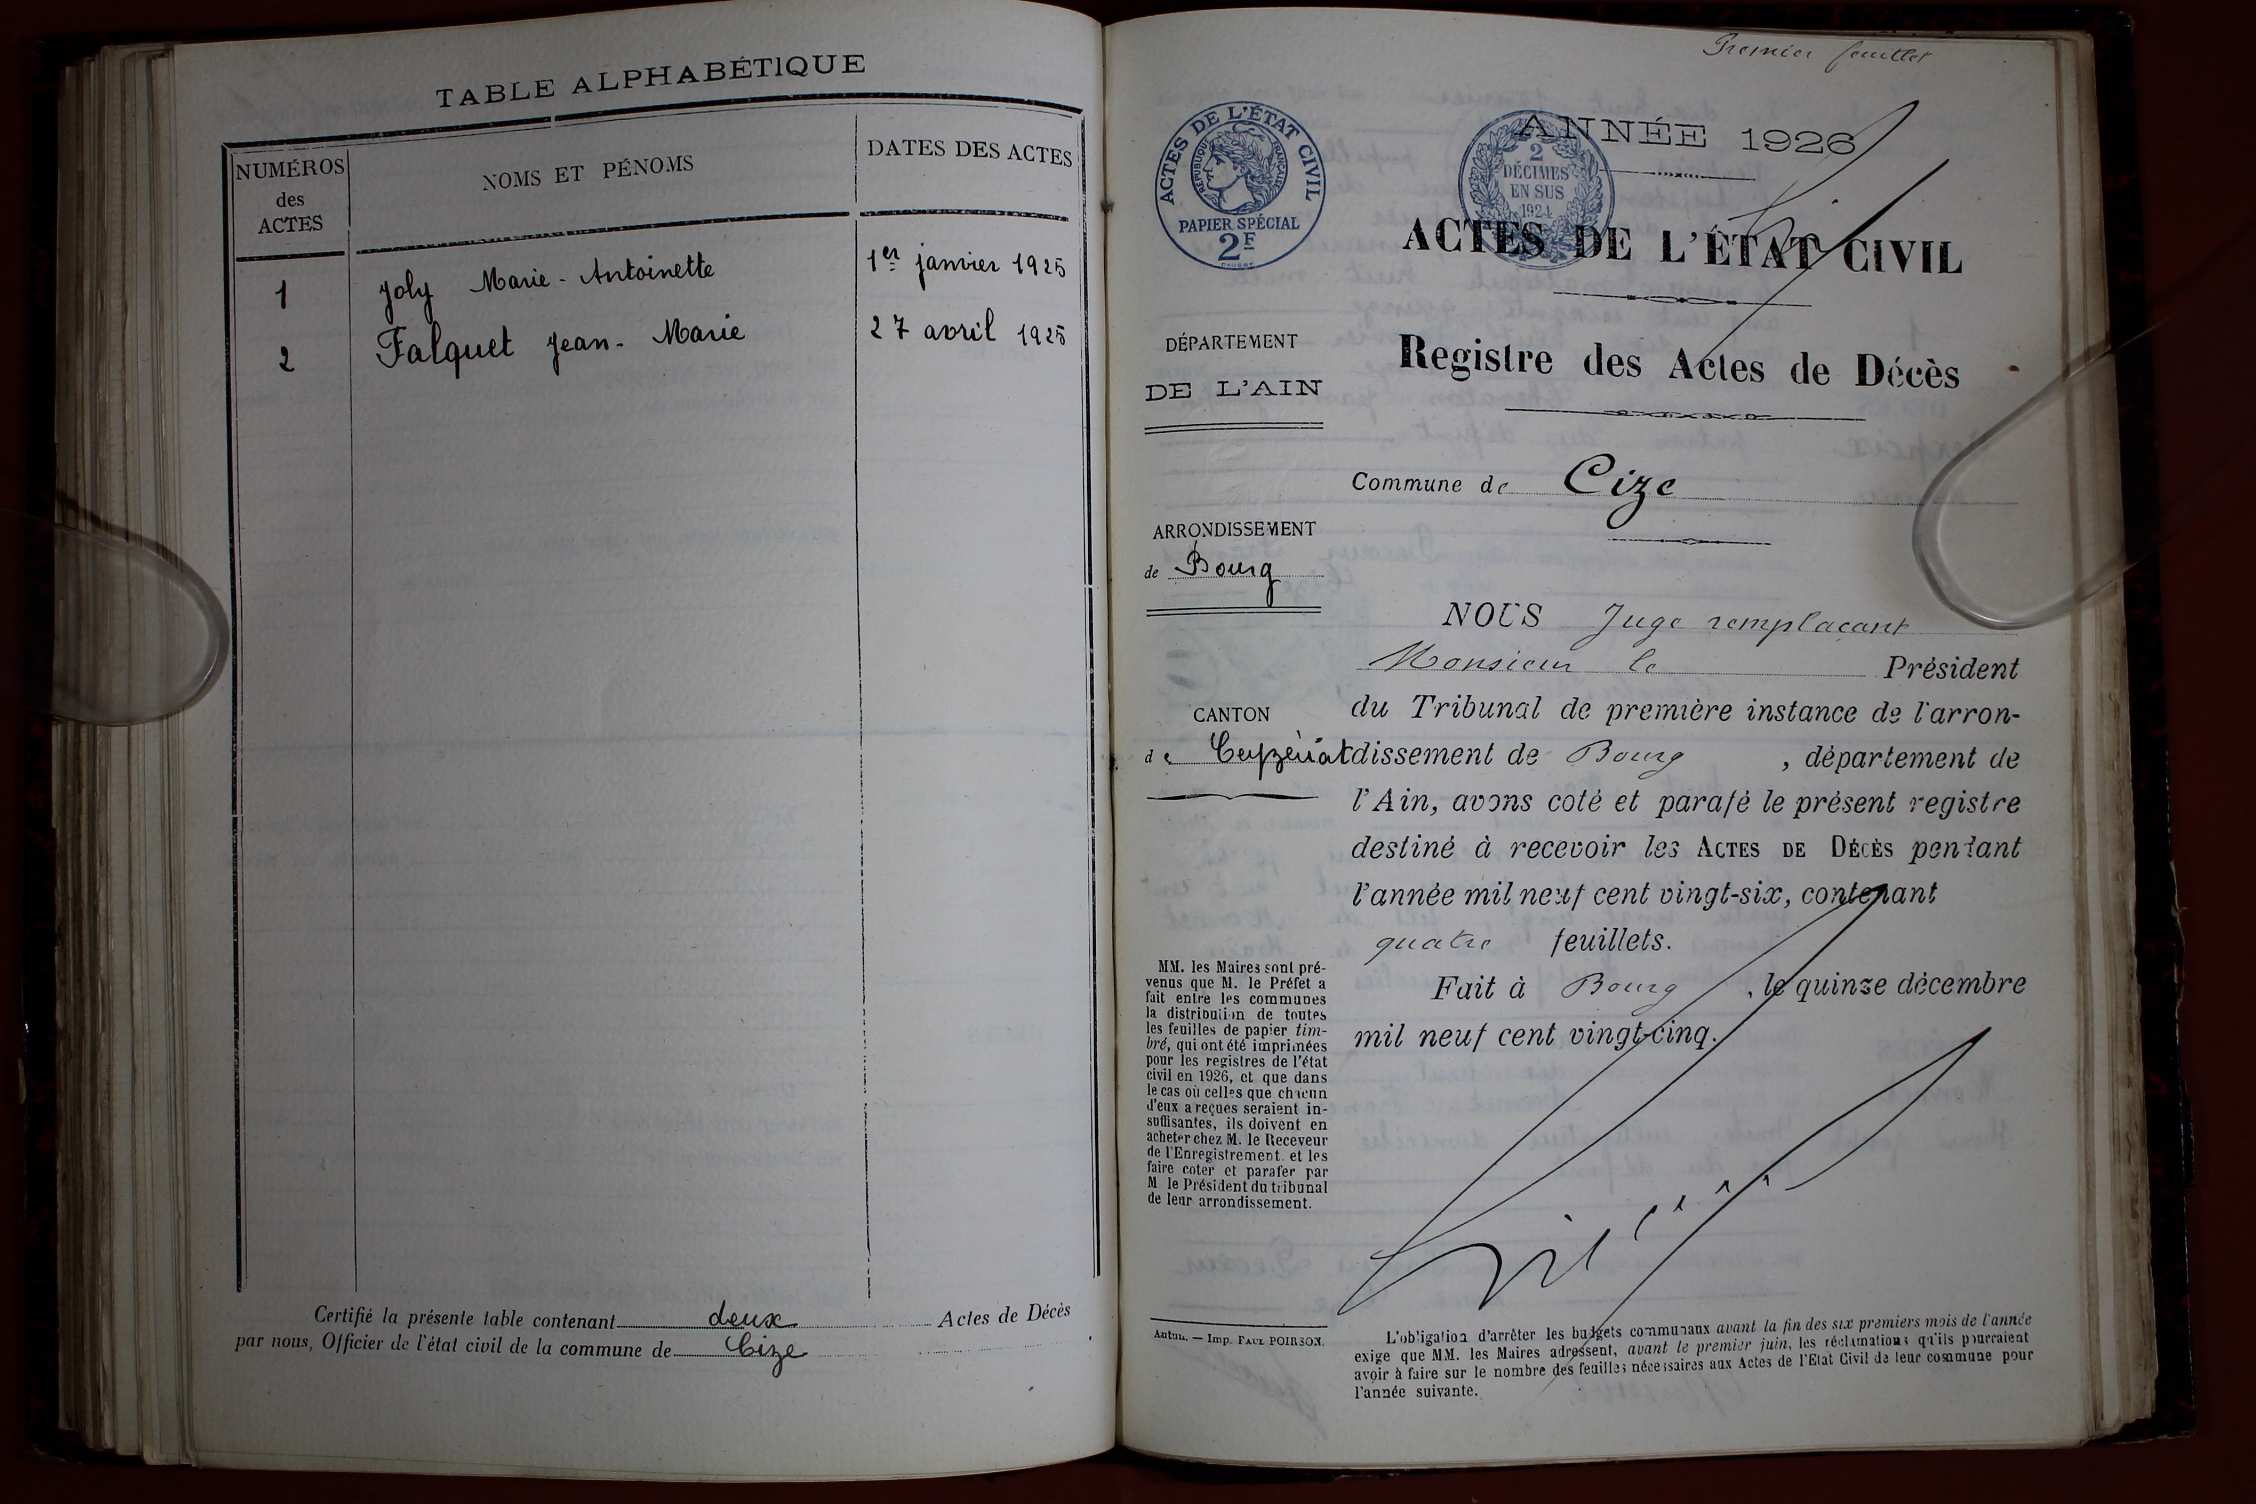 TABLE ALPHABÉTIQUE
NUMÉROS
des
ACTES
NOMS ET PÉNOMS
DATES DES ACTES
1 Joly Marie-Antoinette 1er janvier 1925
2 Falquet Jean-Marie 27 avril 1925
Certifié la présente table contenant deux Actes de Décès
par nous, Officier de l'état civil de la commune de Cize
Premier feuillet
ACTES DE L'ÉTAT CIVIL
RÉPUBLIQUE FRANÇAISE
PAPIER SPÉCIAL
2F
2
DÉCIMES
EN SUS
1924
ANNÉE 1926
ACTES DE L'ÉTAT CIVIL
Registre des Actes de Décès
DÉPARTEMENT
DE L'AIN
Commune de Cize
ARRONDISSEMENT
de Bourg
CANTON
de Ceyzériat
NOUS Juge remplaçant
Monsieur le Président
du Tribunal de première instance de l'arron-
dissement de Bourg, département de
l'Ain, avons coté et parafé le présent registre
destiné à recevoir les ACTES DE DÉCÈS pendant
l'année mil neuf cent vingt-six, contenant
quatre feuillets.
Fait à Bourg, le quinze décembre
mil neuf cent vingt-cinq.
MM. les Maires sont pré-
venus que M. le Préfet a
fait entre les communes
la distribution de toutes
les feuilles de papier tim-
bré, qui ont été imprimées
pour les registres de l'état
civil en 1926, et que dans
le cas où celles que chacun
d'eux a reçues seraient in-
suffisantes, ils doivent en
acheter chez M. le Receveur
de l'Enregistrement. et les
faire coter et parafer par
M le Président du tribunal
de leur arrondissement.
Autun. — Imp. PAUL POIRSON.
L'obligation d'arrêter les budgets communaux avant la fin des six premiers mois de l'année
exige que MM. les Maires adressent, avant le premier juin, les réclamations qu'ils pourraient
avoir à faire sur le nombre des feuilles nécessaires aux Actes de l'Etat Civil de leur commune pour
l'année suivante.